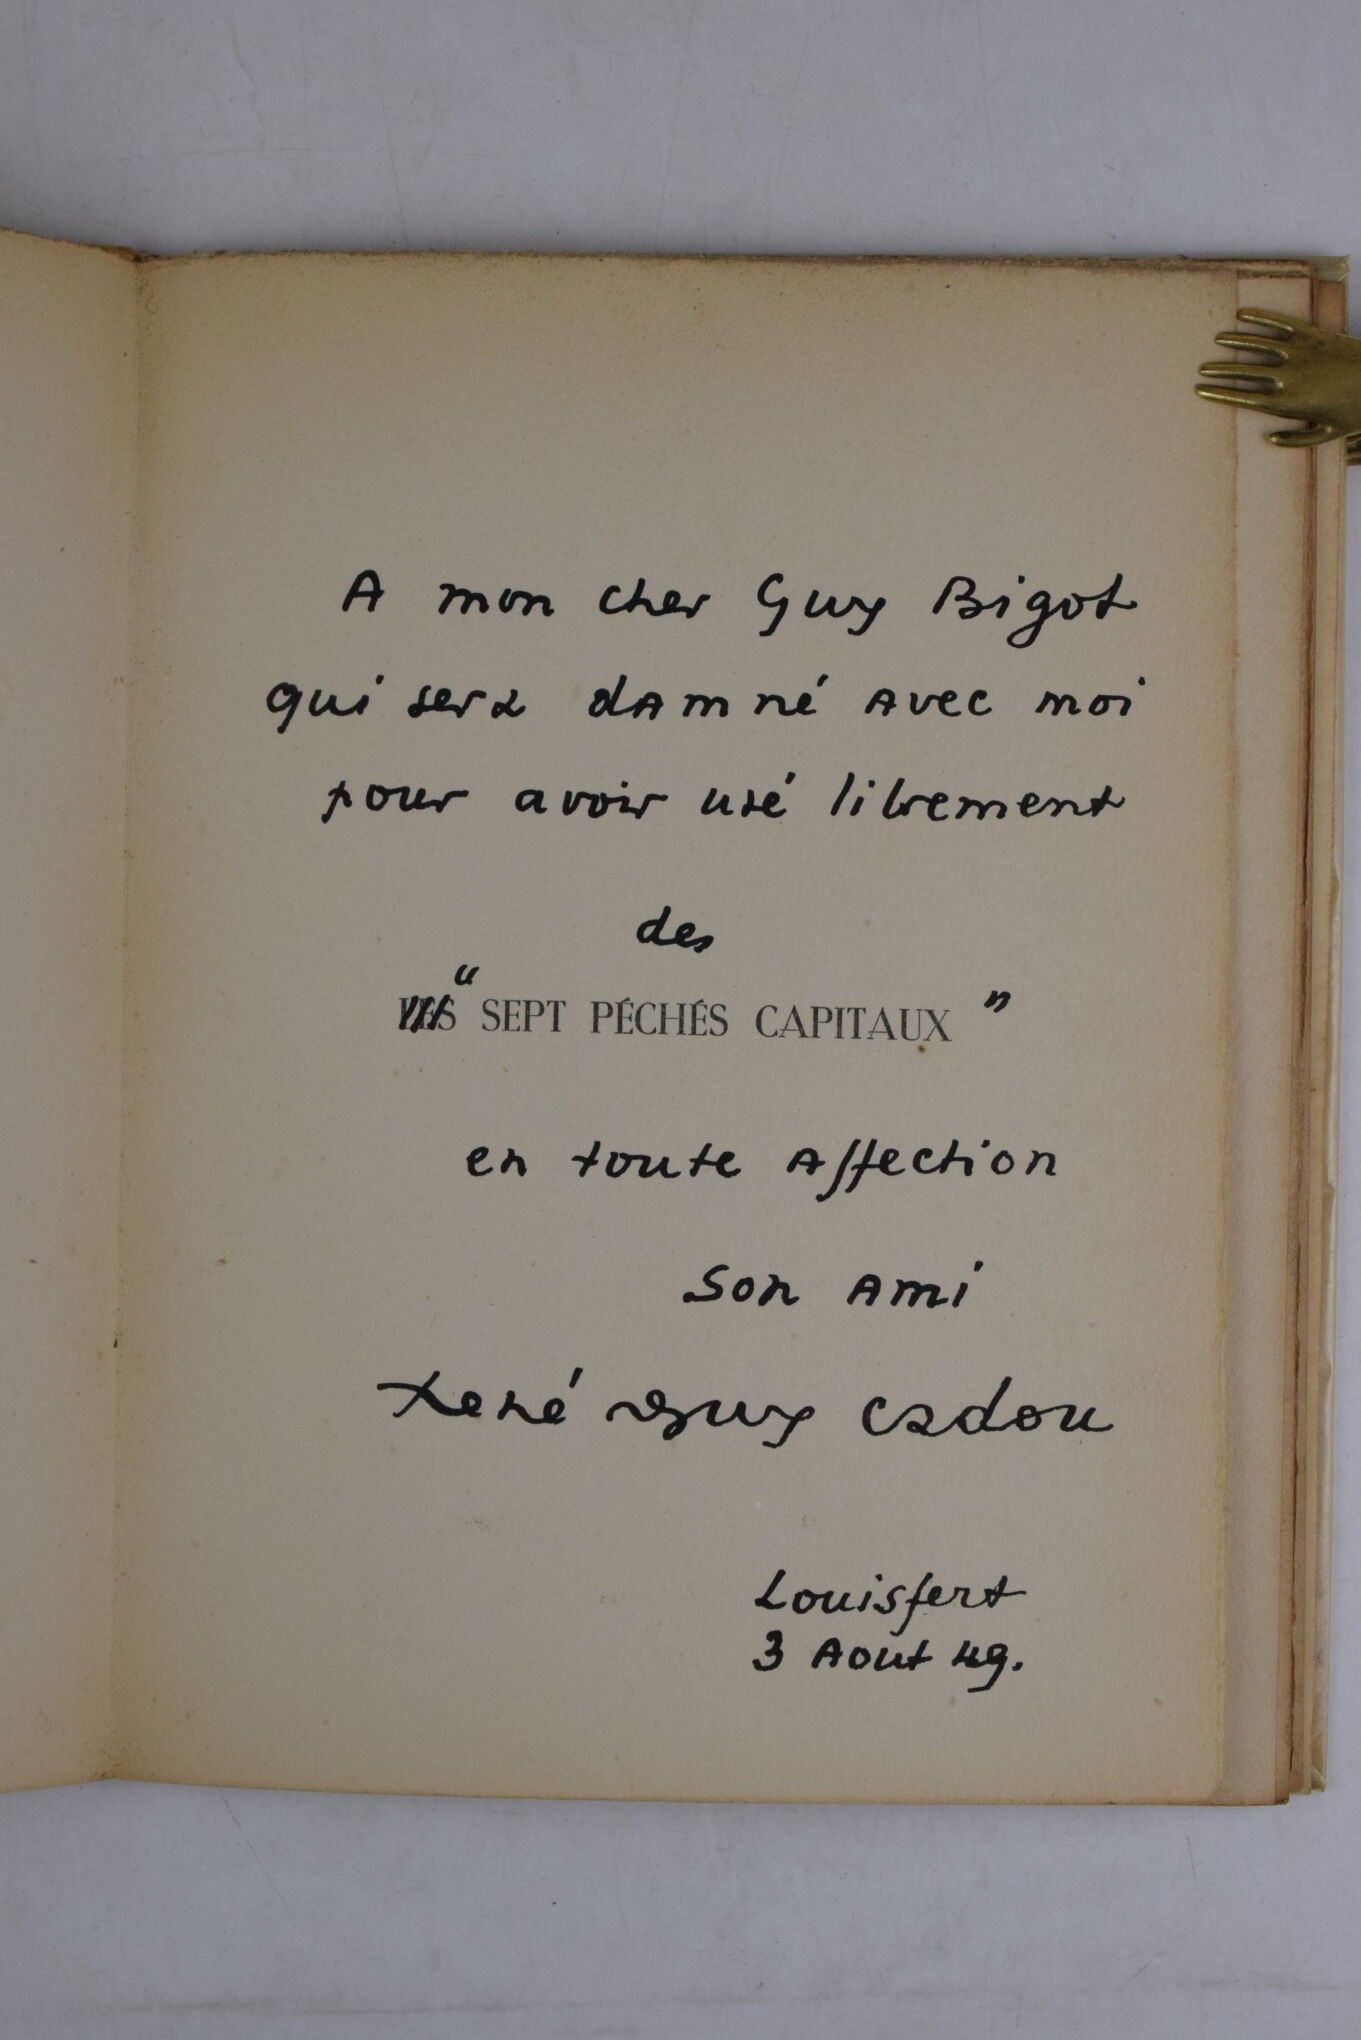 A mon cher Guy Bigot
qui sera damné avec moi
pour avoir usé librement
des
LES "SEPT PÉCHÉS CAPITAUX"
en toute affection
Son ami
René Guy Cadou
Louisfert
3 Aout 49.